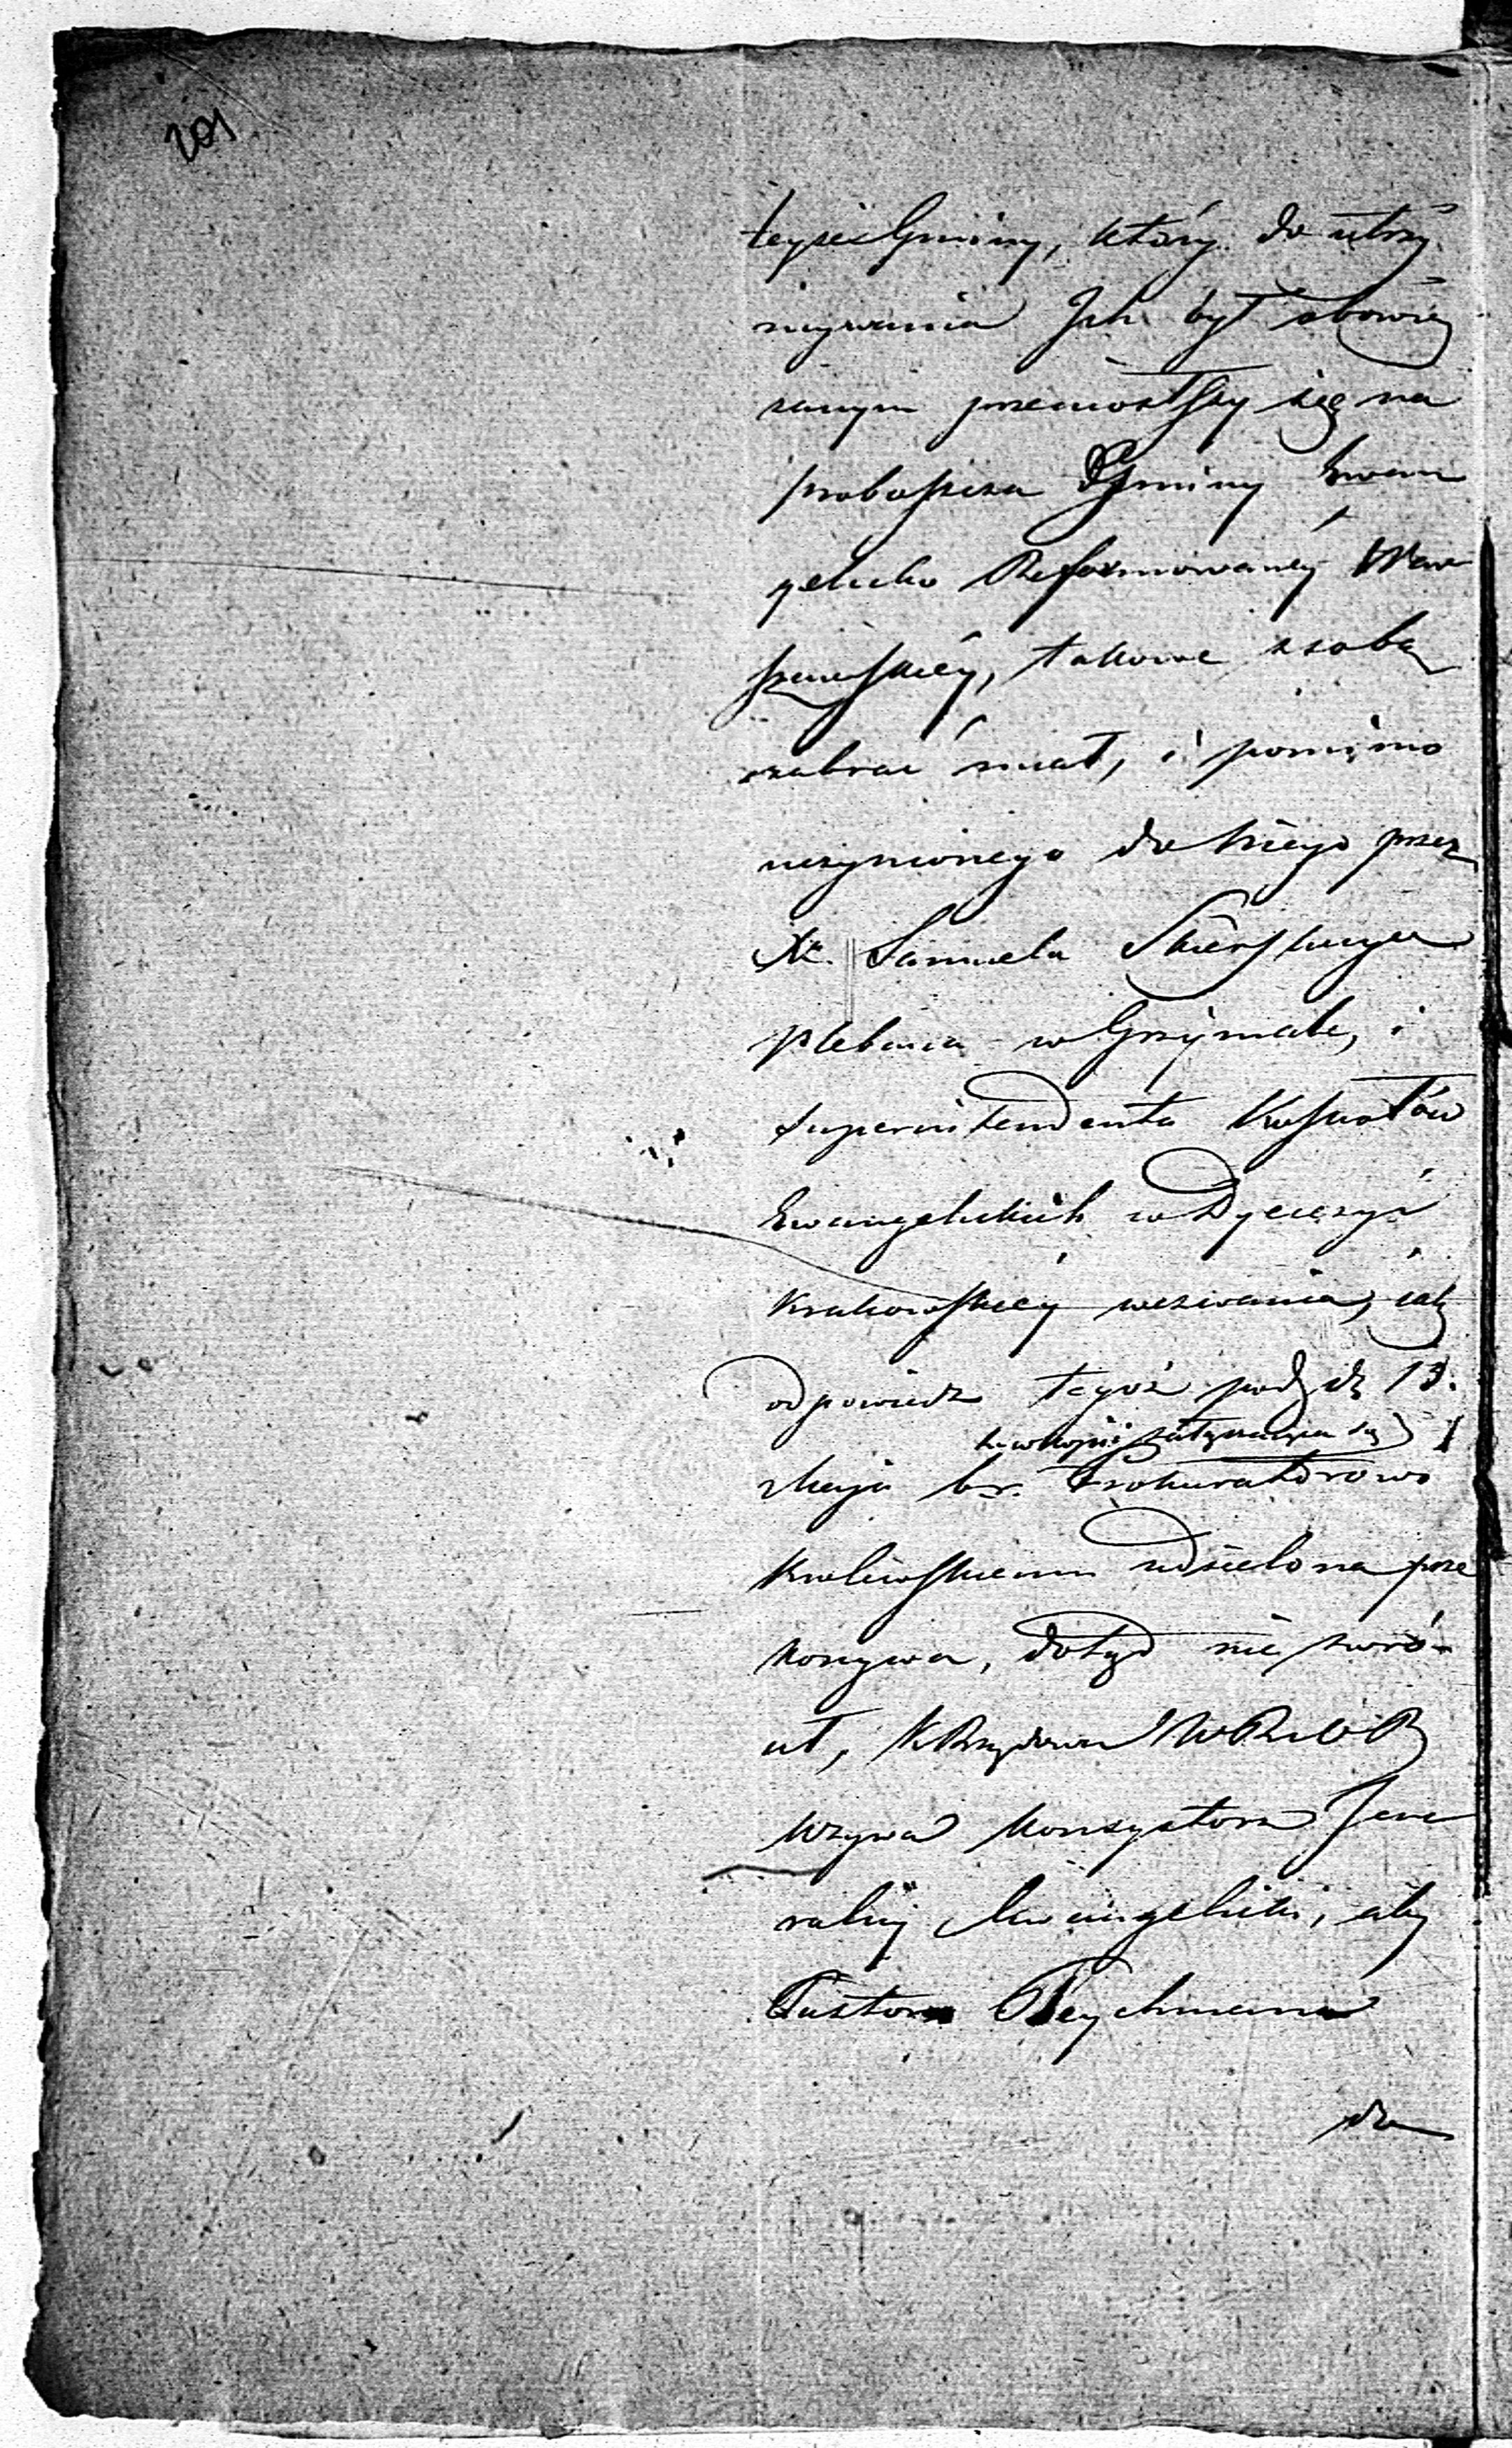 201
teyże Gminy, który do utrzy
mywania Ich był obowią
zanym przeniosłszy się na
probostwa Gminy Ewan
gelicko Reformowaney War
szawskiey, takowe z sobą
zabrać miał, i pomimo
uczynionego do niego przez
Xa. Samuela Skierskiego
Plebana w Grzymale, i
Superintendenta Kościołów
Ewangelickich w Dyecezyi
Krakowskiey wezwania, iak
odpowiedz tegoż pod dz 13.
tu w kopii załączaiąca się
Maja br. Prokuratorowi
Królewskiemu udzielona prze
konywa, dotąd nie zwró-
cił,
wzywa Konsystorz Jene
ralny Ewangelicki, aby
Pastora Teychmana
do